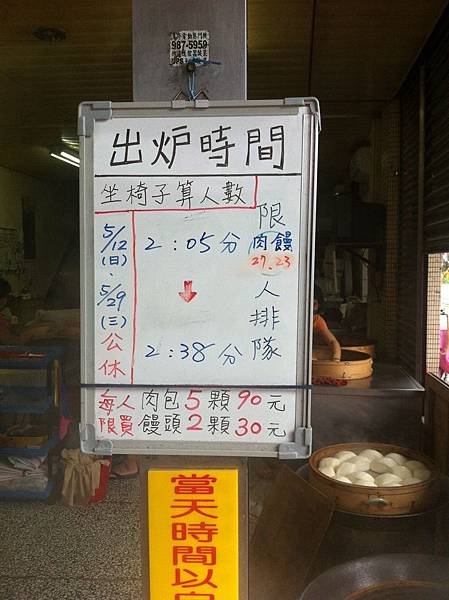 987-5959
出炉時間
坐椅子算人數
5/12
(日)
、
5/29
(三)
公休
2:05分
2:38分
限
肉饅
27.23
人排隊
每人限買
肉包5顆90元
饅頭2顆30元
當天時間以